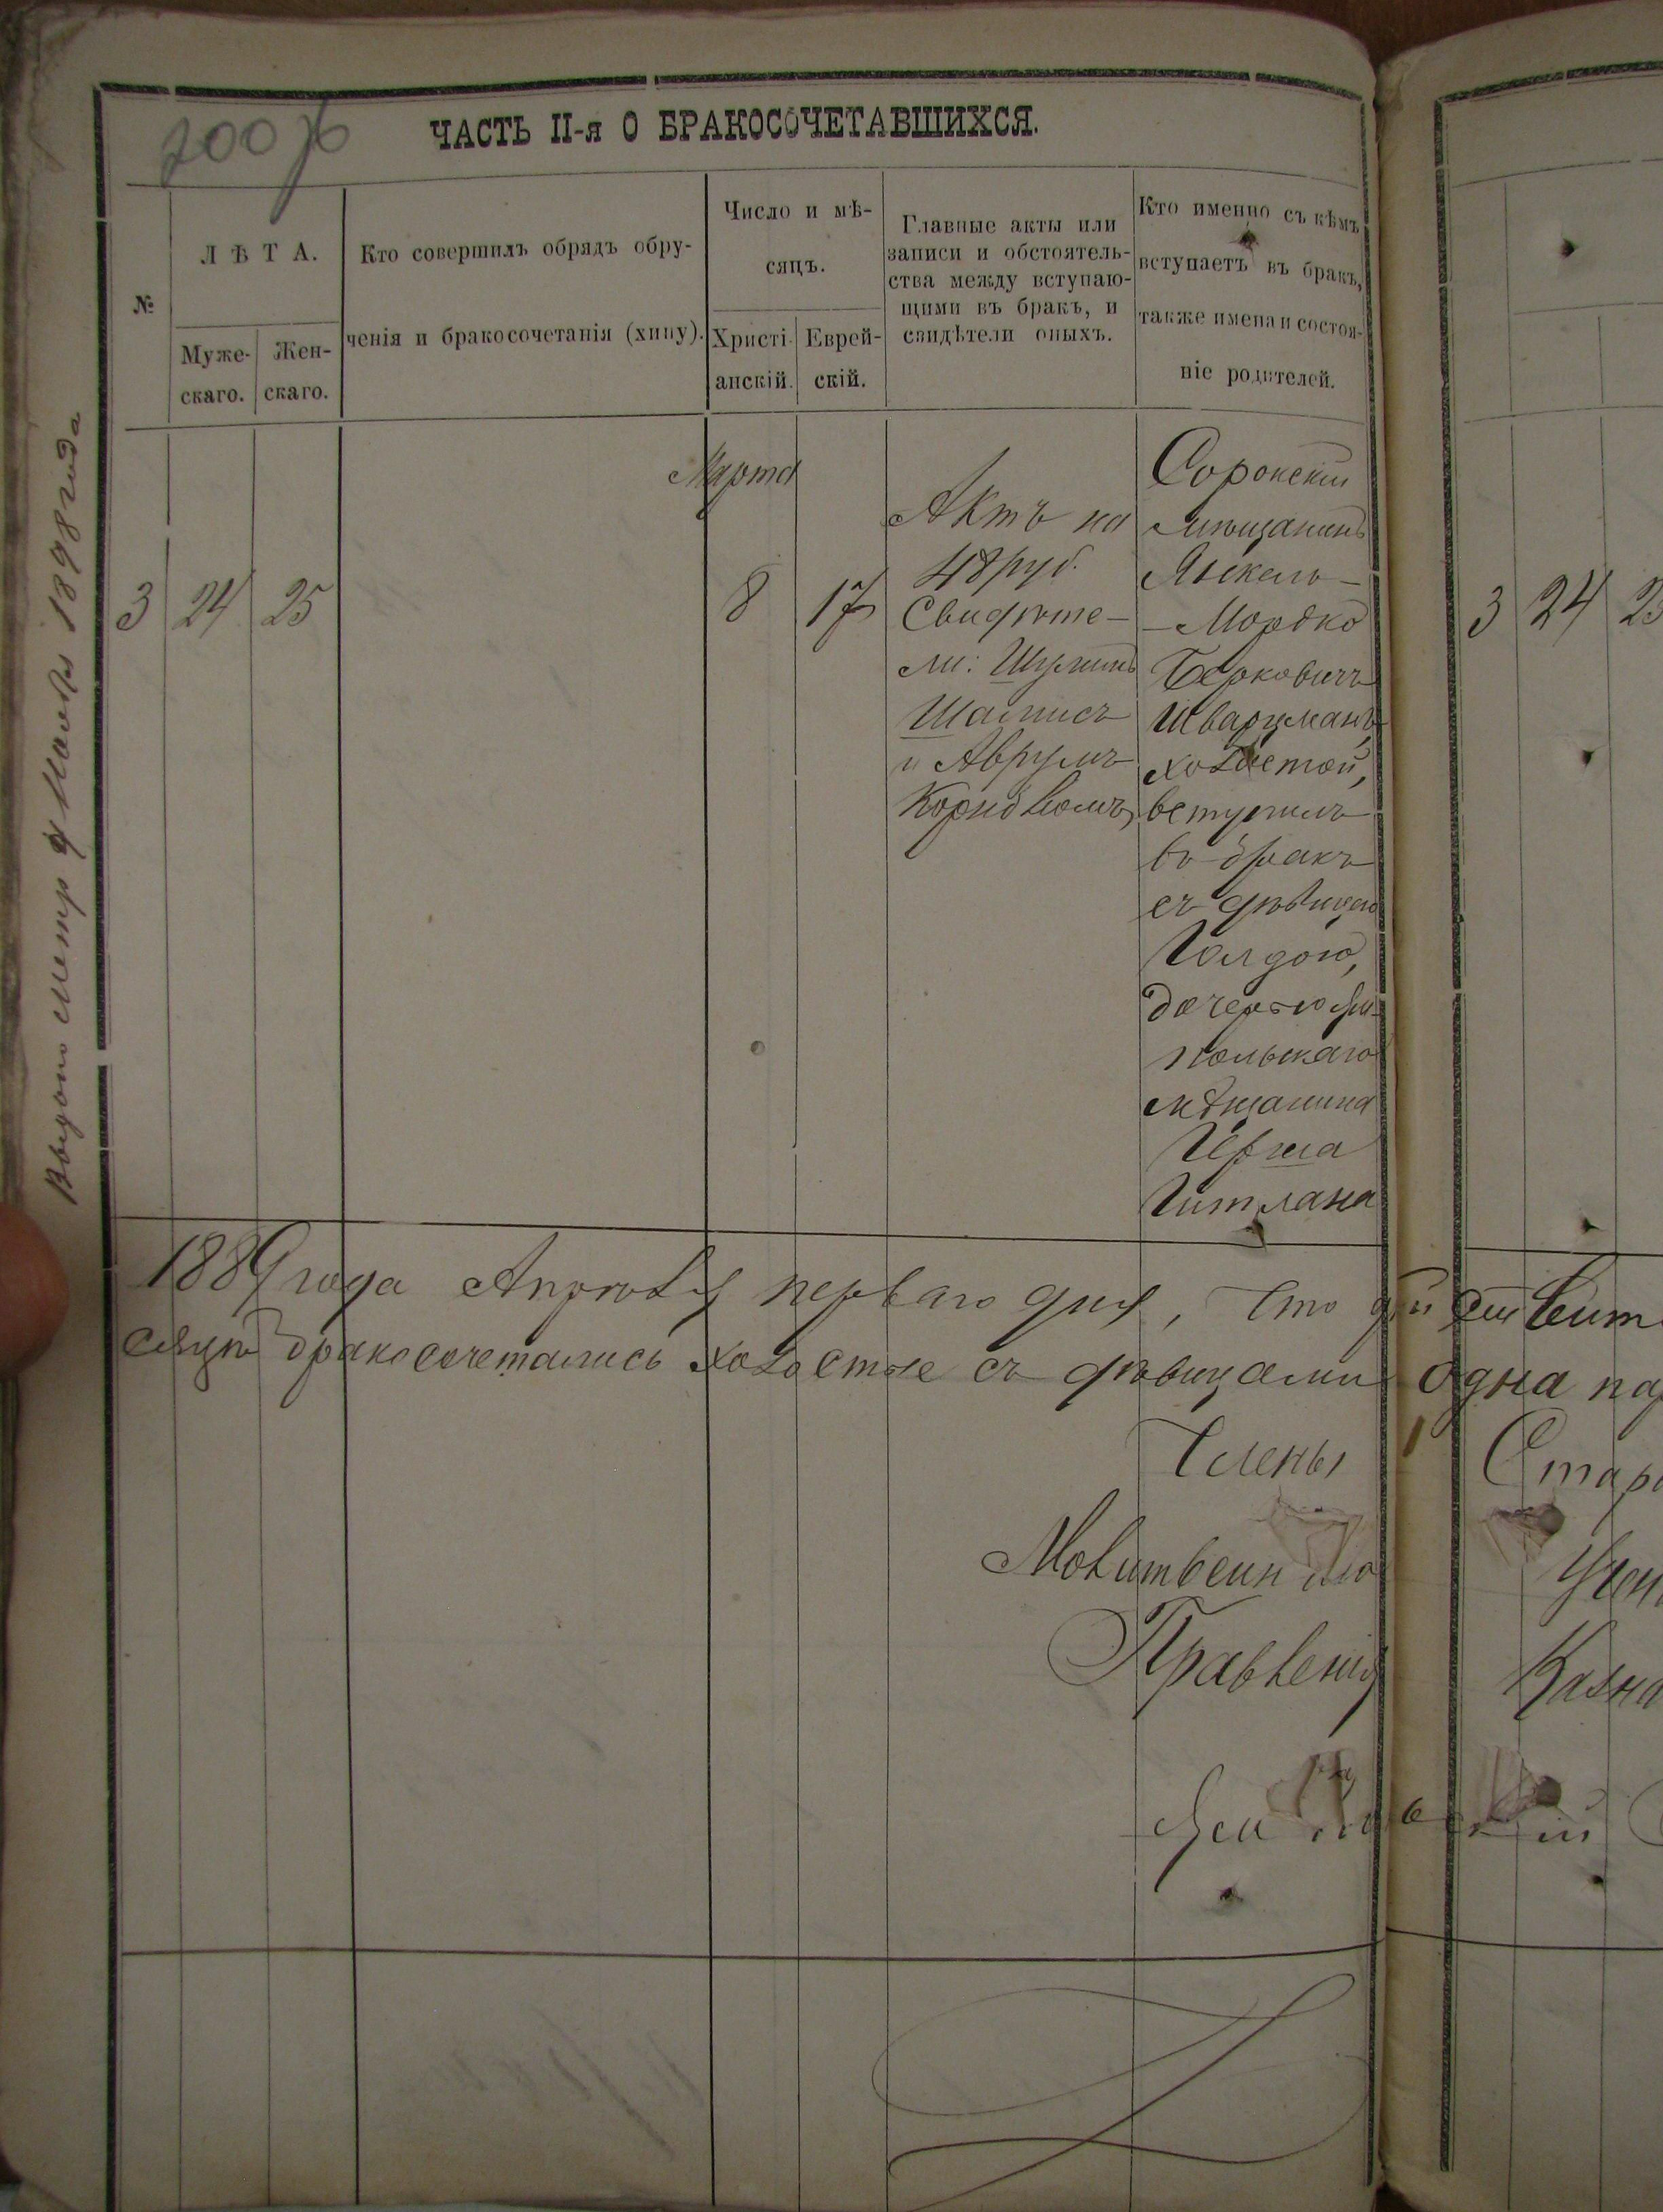 200 об
ЧАСТЬ II-я О БРАКОСОЧЕТАВШИХСЯ.
№
Л Ѣ Т А.
Муже-
скаго.
Жен-
скаго.
Кто совершилъ обрядъ обру-
ченія и бракосочетанія (хипу).
Число и мѣ-
сяцъ.
Христі-
анскій.
Еврей-
скій.
Главные акты или
записи и обстоятель-
ства между вступаю-
щими въ бракъ, и
свидѣтели оныхъ.
Кто именно съ кѣмъ
вступаетъ въ бракъ,
также имена и состоя-
ніе родителей.
3 24 25
Марта
8 17
Актъ на
48 руб.
Свидѣте-
ли:
Шамисъ
и Аврумъ
Сорокскій
мѣщанинъ
Янкель-
-Мордко
Берковичъ
Шварцманъ
холостой,
вступилъ
въ бракъ
съ дѣвицею
Голдою,
дочерью Ям-
польскаго
мѣщанина
Герша
Гитмана
3 24 25
1889 года Апрѣля перваго дня, что
бракосочетались холостые съ дѣвицами одна
Члены
Молитвеннаго
Правленія
1898 года